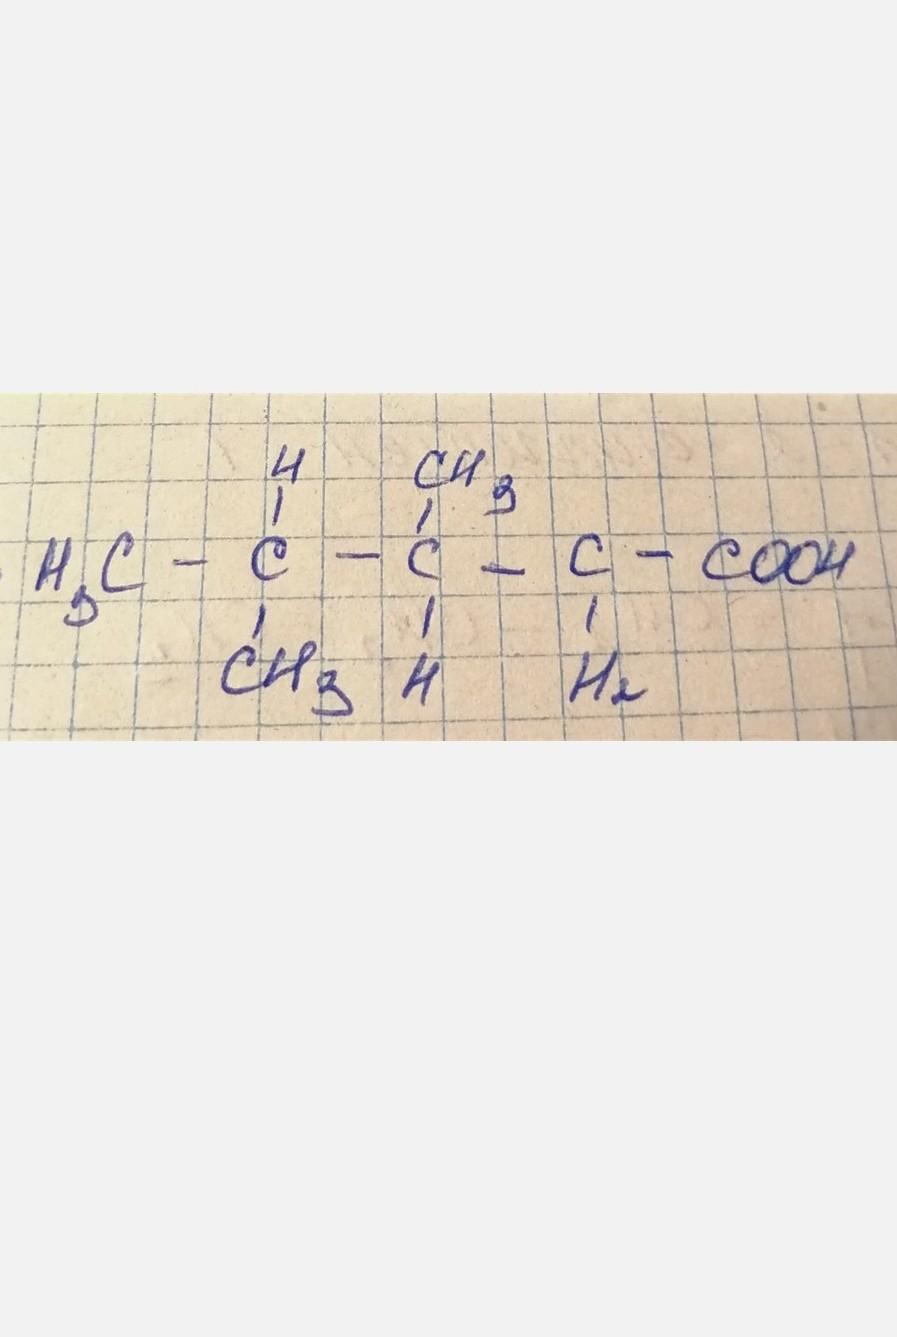 H CH3
H3C - C - C - C - COOH
CH3 H H2